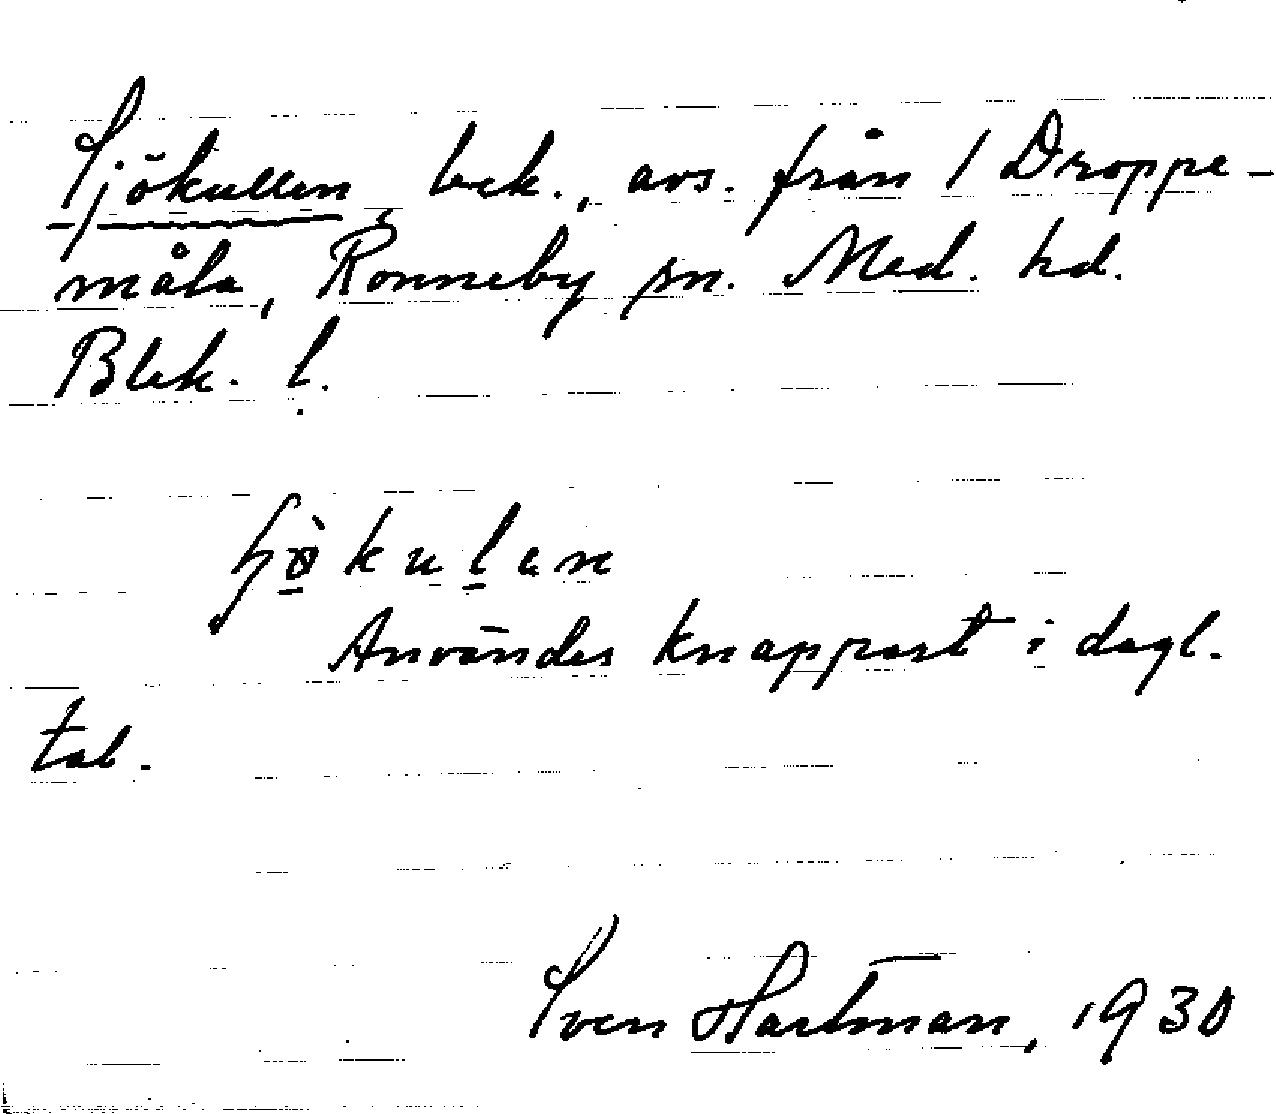 Sjökullen, bek., avs. från 1 Droppe-
måla, Ronneby sn. Med. hd.
Blek. l.
ɧø̀kulen
Användes knappast i dagl.
tal.
Sven Hartman, 1930